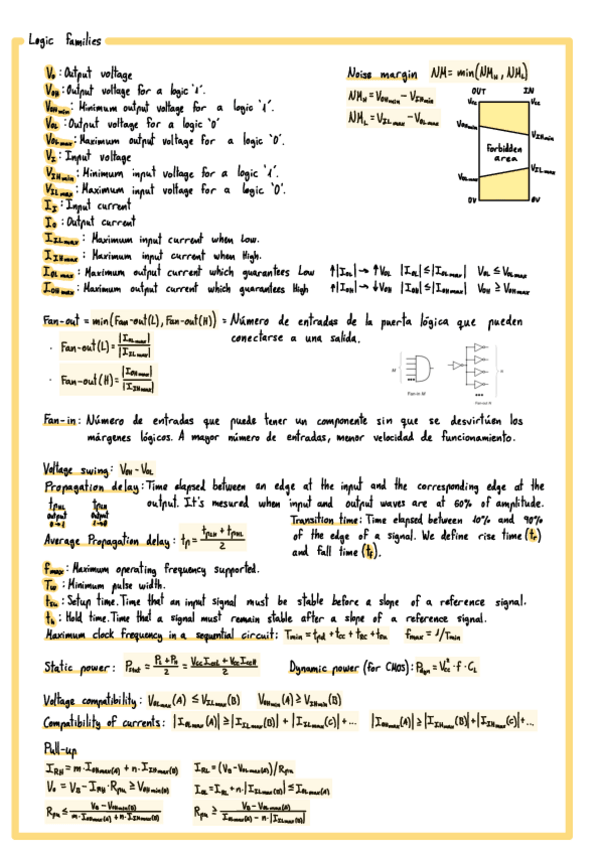 Logic families
V₀ : Output voltage
V_OH : Output voltage for a logic '1'.
V_OHmin : Minimum output voltage for a logic '1'.
V_OL : Output voltage for a logic '0'
V_OLmax : Maximum output voltage for a logic '0'.
V_I : Input voltage
V_IHmin : Minimum input voltage for a logic '1'.
V_ILmax : Maximum input voltage for a logic '0'.
I_I : Input current
I_o : Output current
I_ILmax : Maximum input current when Low.
I_IHmax : Maximum input current when High.
I_OLmax : Maximum output current which guarantees Low ↑|I_OL| → ↑V_OL |I_OL| ≤ |I_OLmax| V_OL ≤ V_OLmax
I_OHmax : Maximum output current which guarantees High ↑|I_OH| → ↓V_OH |I_OH| ≤ |I_OHmax| V_OH ≥ V_OHmin
Noise margin NM = min(NM_H, NM_L)
NM_H = V_OHmin − V_IHmin
NM_L = V_ILmax − V_OLmax
OUT IN
Vcc Vcc
V_OHmin V_IHmin
Forbidden
area
V_OLmax V_ILmax
0V 0V
Fan-out = min(Fan-out(L), Fan-out(H)) = Número de entradas de la puerta lógica que pueden
conectarse a una salida.
· Fan-out(L) = |I_OLmax| / |I_ILmax|
· Fan-out(H) = |I_OHmax| / |I_IHmax|
M
Fan-in M
Fan-out n
Fan-in : Número de entradas que puede tener un componente sin que se desvirtúen los
márgenes lógicos. A mayor número de entradas, menor velocidad de funcionamiento.
Voltage swing : V_OH − V_OL
Propagation delay : Time elapsed between an edge at the input and the corresponding edge at the
output. It's mesured when input and output waves are at 50% of amplitude.
t_pLH t_pHL
output output
0→1 1→0
Transition time : Time elapsed between 10% and 90%
of the edge of a signal. We define rise time (t_r)
and fall time (t_f).
Average Propagation delay : t_p = (t_pLH + t_pHL) / 2
f_max : Maximum operating frequency supported.
T_w : Minimum pulse width.
t_su : Setup time. Time that an input signal must be stable before a slope of a reference signal.
t_h : Hold time. Time that a signal must remain stable after a slope of a reference signal.
Maximum clock frequency in a sequential circuit : T_min = t_pd + t_cc + t_su f_max = 1/T_min
Static power : P_stat = (P_L + P_H) / 2 = (V_CC I_CCL + V_CC I_CCH) / 2 Dynamic power (for CMOS) : P_dyn = V²cc · f · C_L
Voltage compatibility : V_OLmax (A) ≤ V_ILmax (B) V_OHmin (A) ≥ V_IHmin (B)
Compatibility of currents : |I_OLmax (A)| ≥ |I_ILmax (B)| + |I_ILmax (C)| + ... |I_OHmax (A)| ≥ |I_IHmax (B)| + |I_IHmax (C)| + ...
Pull-up
I_RH = m · I_OHmax(A) + n · I_IHmax(B) I_RL = (V_B − V_OLmax(A)) / R_pu
V_o = V_B − I_RH · R_pu ≥ V_OHmin(B) I_OL = I_RL + n · |I_ILmax(B)| ≤ I_OLmax(A)